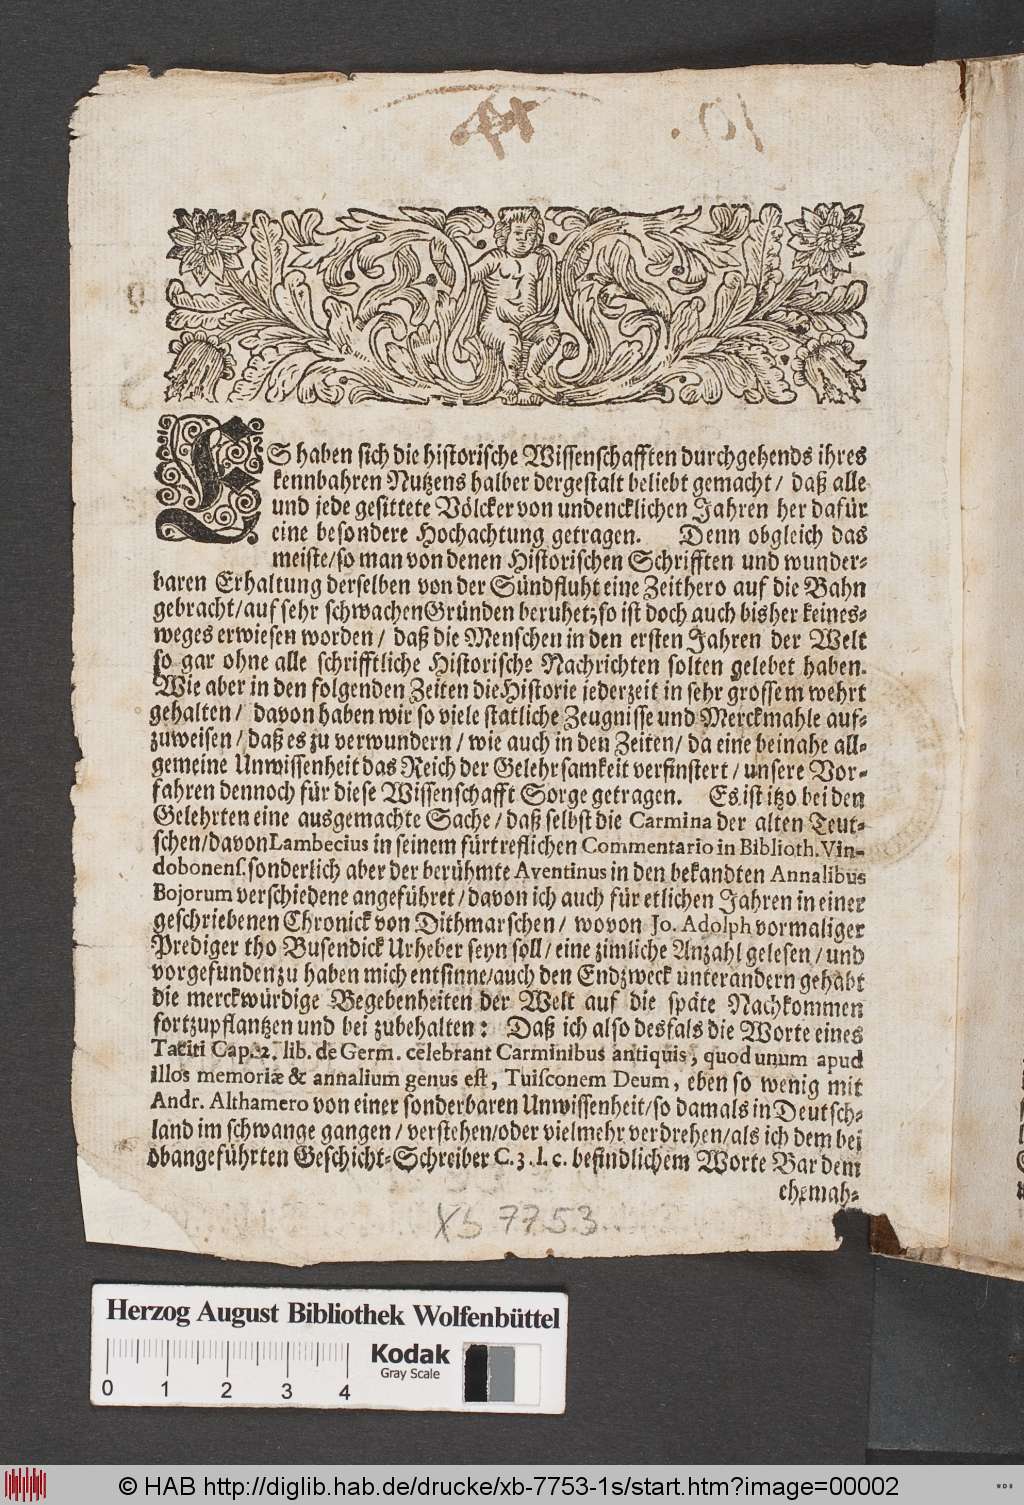 10.
ES haben sich die historische Wissenschafften durchgehends ihres
kennbahren Nutzens halber dergestalt beliebt gemacht / daß alle
und jede gesittete Völcker von undencklichen Jahren her dafür
eine besondere Hochachtung getragen. Denn obgleich das
meiste / so man von denen Historischen Schrifften und wunder-
baren Erhaltung derselben von der Sündfluht eine Zeithero auf die Bahn
gebracht / auf sehr schwachen Gründen beruhet; so ist doch auch bisher keines-
weges erwiesen worden / daß die Menschen in den ersten Jahren der Welt
so gar ohne alle schrifftliche Historische Nachrichten solten gelebet haben.
Wie aber in den folgenden Zeiten die Historie jederzeit in sehr grossem wehrt
gehalten / davon haben wir so viele statliche Zeugnisse und Merckmahle auf-
zuweisen / daß es zu verwundern / wie auch in den Zeiten / da eine beinahe all-
gemeine Unwissenheit das Reich der Gelehrsamkeit verfinstert / unsere Vor-
fahren dennoch für diese Wissenschafft Sorge getragen. Es ist itzo bei den
Gelehrten eine ausgemachte Sache / daß selbst die Carmina der alten Teut-
schen / davon Lambecius in seinem fürtreflichen Commentario in Biblioth. Vin-
dobonens. sonderlich aber der berühmte Aventinus in den bekandten Annalibus
Bojorum verschiedene angeführet / davon ich auch für etlichen Jahren in einer
geschriebenen Chronick von Dithmarschen / wovon Jo. Adolph vormaliger
Prediger tho Busendick Urheber seyn soll / eine zimliche Anzahl gelesen / und
vorgefunden zu haben mich entsinne / auch den Endzweck unterandern gehabt
die merckwürdige Begebenheiten der Welt auf die späte Nachkommen
fortzupflantzen und bei zubehalten: Daß ich also desfals die Worte eines
Taciti Cap. 2. lib. de Germ. celebrant Carminibus antiquis, quod unum apud
illos memoriæ & annalium genus est, Tuisconem Deum, eben so wenig mit
Andr. Althamero von einer sonderbaren Unwissenheit / so damals in Deutsch-
land im schwange gangen / verstehen / oder vielmehr verdrehen / als ich dem bei
obangeführten Geschicht-Schreiber C. 3. l. c. befindlichem Worte Bar dem
ehemah-
Xb 7753
Herzog August Bibliothek Wolfenbüttel
Kodak
Gray Scale
0 1 2 3 4
© HAB http://diglib.hab.de/drucke/xb-7753-1s/start.htm?image=00002